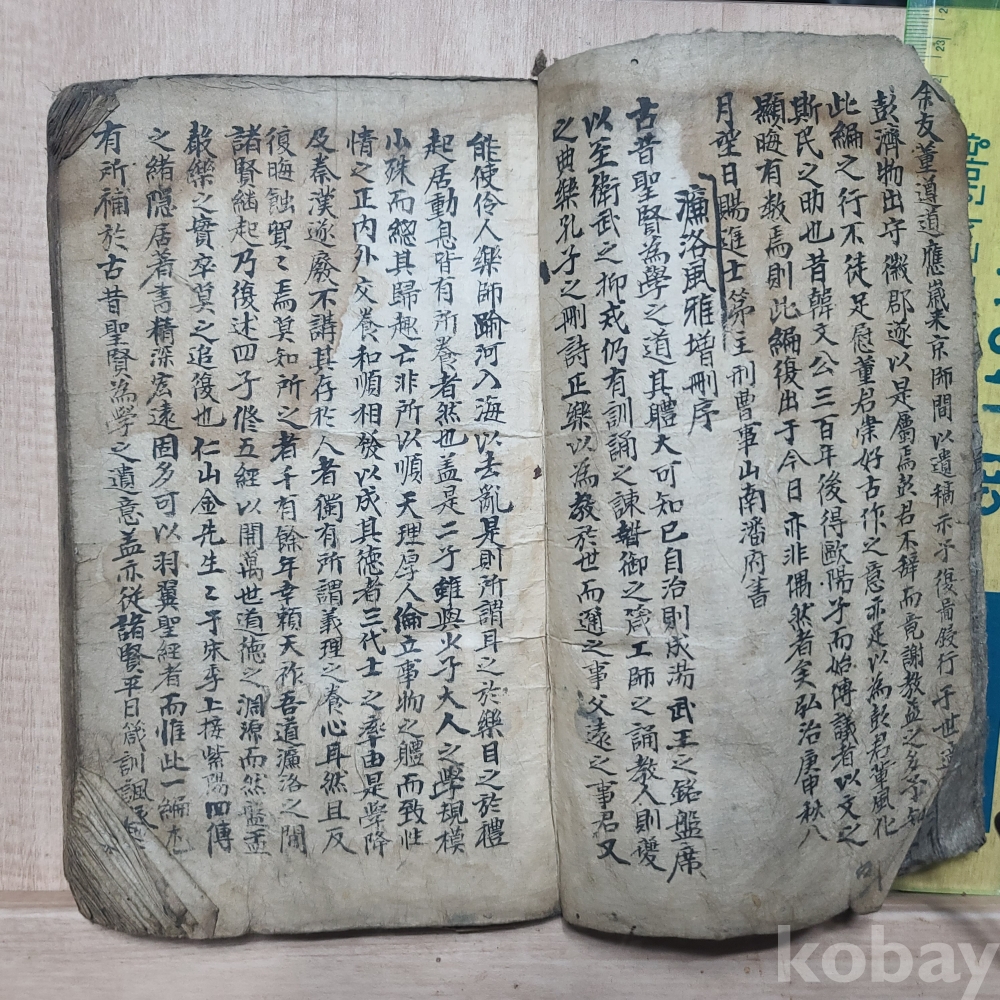 余友董遵道應歲來京師間以遺稿示予復圖鋟行于世
彭濟物出守徽郡遂以是屬焉彭君不辭而竟謝教益之
此編之行不徒足慰董君崇好古作之意亦足以為彭君董風化
斯民之助也昔韓文公三百年後得歐陽子而始傳議者以文之
顯晦有数焉則此編復出于今日亦非偶然者矣弘治庚申秋八
月望日賜進士第主刑曹事山南潘府書
濂洛風雅增刪序
古昔聖賢為學之道其體大可知已自治則成湯武王之銘盤席
以至衛武之抑戒仍有訓誦之諫暬御之箴工師之誦教人則夔
之典樂孔子之刪詩正樂以為教於世而通之事父遠之事君又
能使伶人樂師踰河入海以去亂是則所謂耳之於樂目之於禮
起居動息皆有所養者然也盖是二者雖與火子大人之學規模
小殊而總其歸趣亡非所以順天理厚人倫立事物之軆而致性
情之正內外交養和順相發以成其德者三代士之率由是學降
及秦漢遂廢不講其存於人者獨有所謂義理之養心耳然且反
復晦蝕貿〻焉莫知所之者千有餘年幸賴天祚吾道濂洛之間
諸賢繼起乃復述四子修五經以開萬世道德之淵源而然盤盂
敔樂之實卒莫之追復也仁山金先生〻于宋季上接紫陽四傳
之緒隱居著書精深宏遠固多可以羽翼聖經者而惟此一編尤
有所補於古昔聖賢為學之遺意盖亦從諸賢平日箴訓諷
kobay